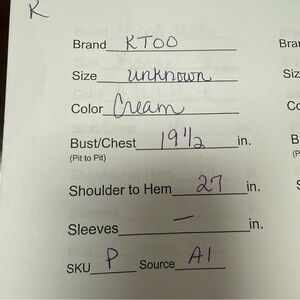 K
Brand KTOO
Bra
Size unknown
Siz
Color Cream
C
Bust/Chest 19 1/2 in.
B
(Pit to Pit)
(P
Shoulder to Hem 27 in.
S
Sleeves — in.
SKU P Source A1